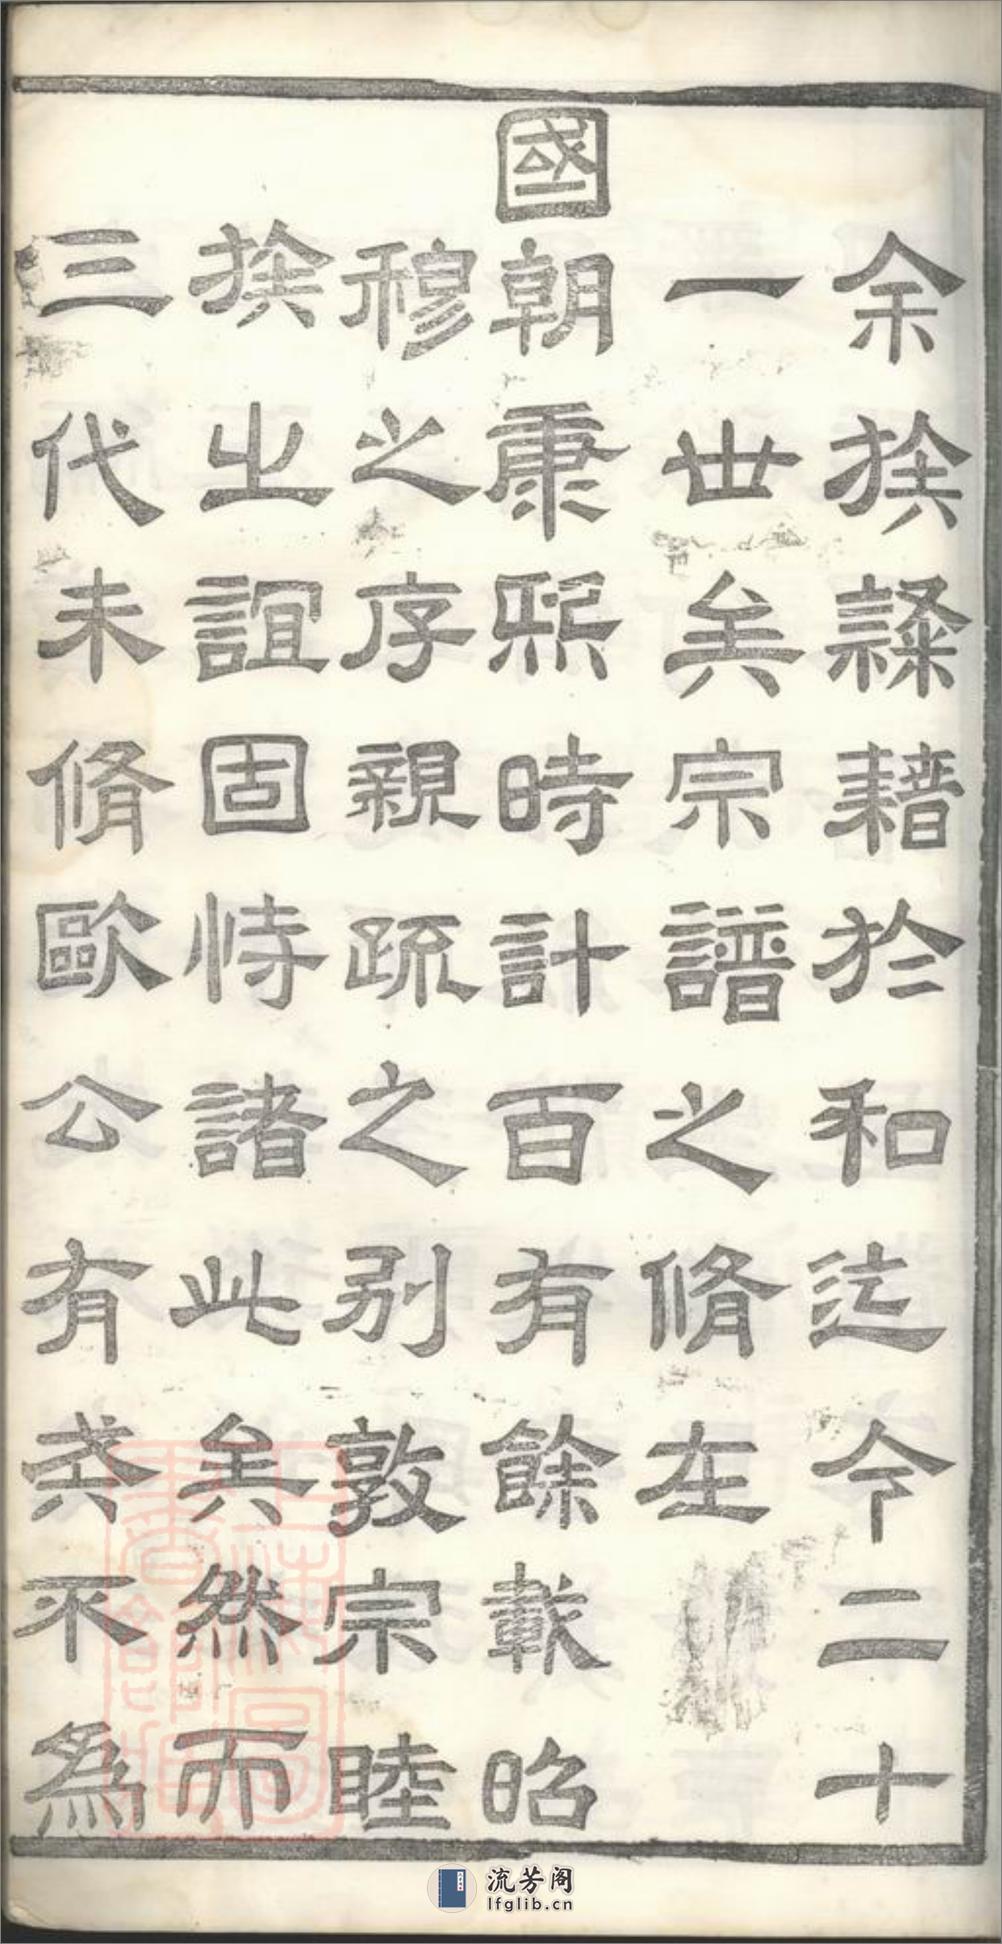 余族隸藉於和迄今二十
一世矣宗譜之脩在
國朝康熙時計百有餘載昭
穆之序親疏之別敦宗睦
族之誼固恃諸此矣然而
三代未脩歐公有

不為
流芳阁
lfglib.cn